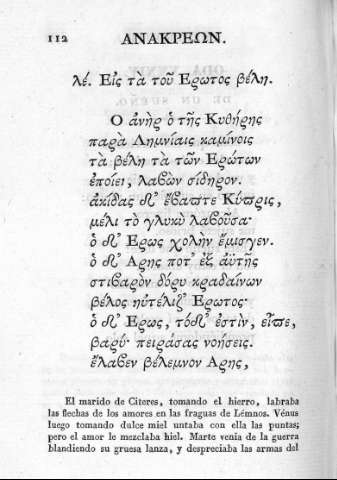 112 ΑΝΑΚΡΕΩΝ.
λέ. Εἰς τὰ τοῦ Ερωτος βέλη.
Ο ἀνὴρ ὁ τῆς Κυθήρης
παρὰ Λημνίαις καμίνοις
τὰ βέλη τὰ τῶν Ερώτων
ἐποίει, λαβὼν σίδηρον.
ἀκίδας δ' ἔβαπτε Κύπρις,
μέλι τὸ γλυκὺ λαβοῦσα·
ὁ δ' Ερως χολὴν ἔμισγεν.
ὁ δ' Αρης ποτ' ἐξ αὐτῆς
στιβαρὸν δόρυ κραδαίνων
βέλος ηὐτέλιζ' Ερωτος·
ὁ δ' Ερως, τόδ' ἐστὶν, εἶπε,
βαρύ· πειράσας νοήσεις.
ἔλαβεν βέλεμνον Αρης,
El marido de Citeres, tomando el hierro, labraba
las flechas de los amores en las fraguas de Lémnos. Vénus
luego tomando dulce miel untaba con ella las puntas;
pero el amor le mezclaba hiel. Marte venia de la guerra
blandiendo su gruesa lanza, y despreciaba las armas del